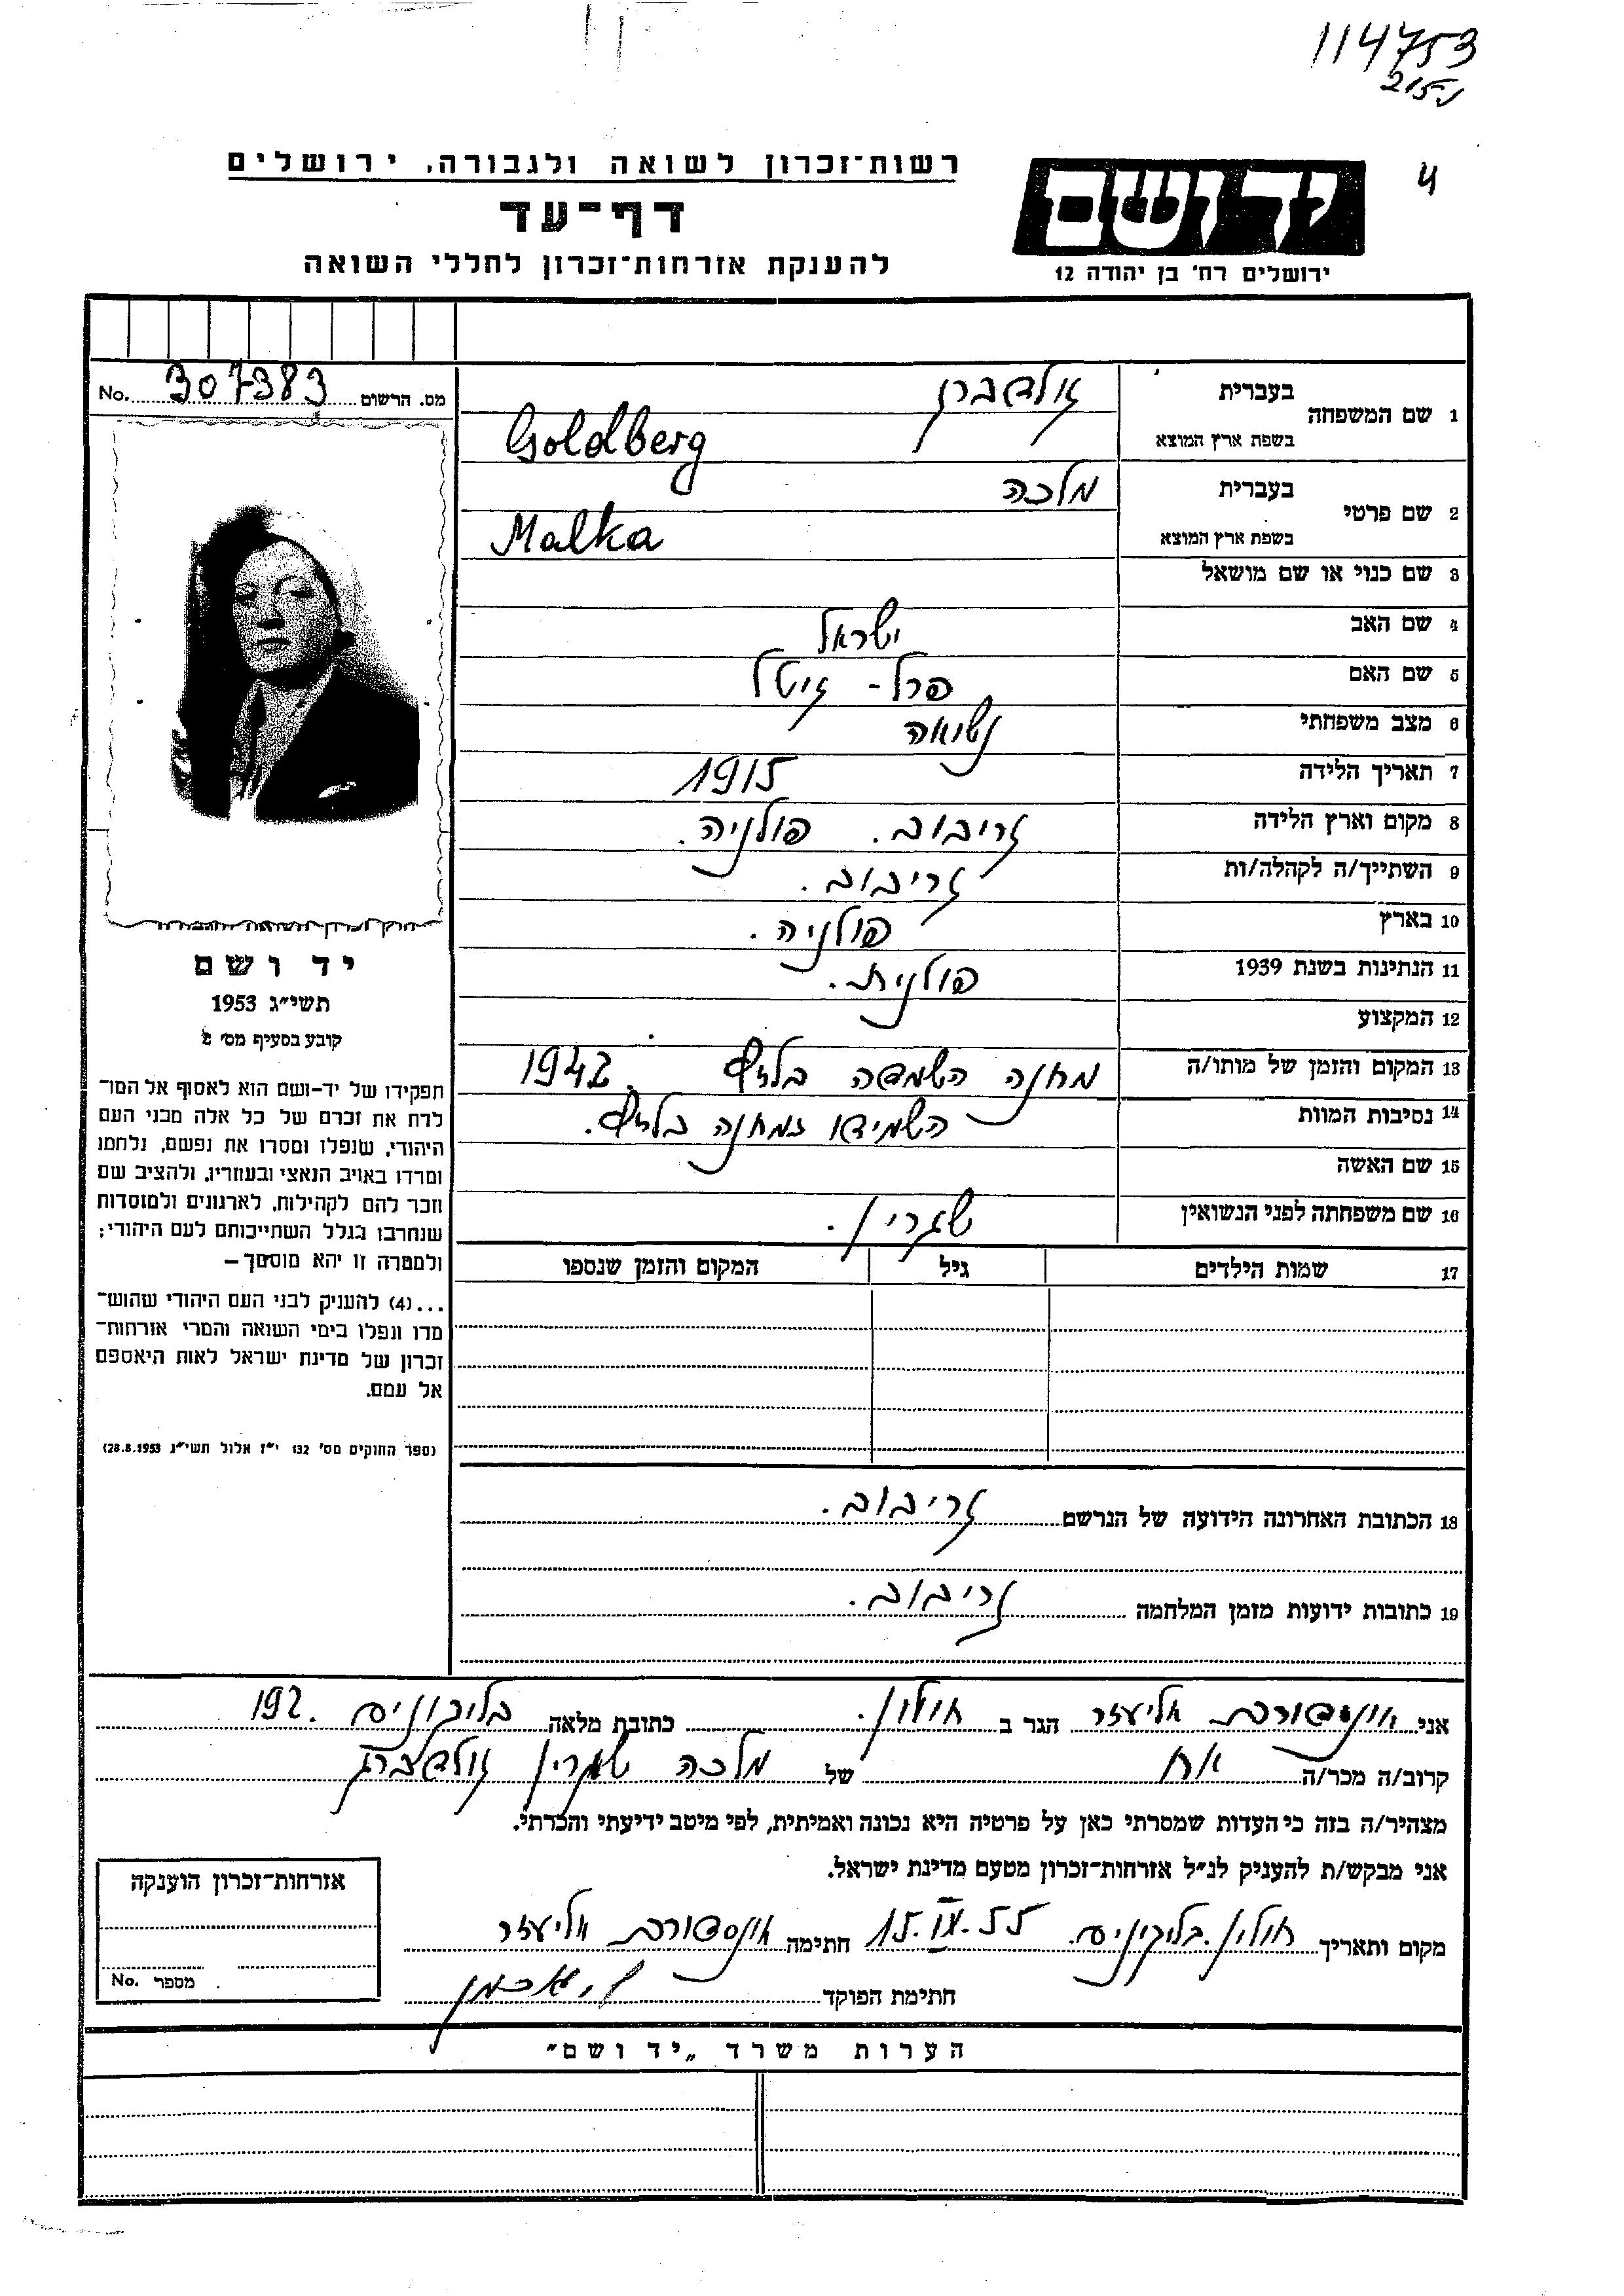 114753
215
4
רשות־זכרון לשואה ולגבורה, ירושלים
דף־עד
להענקת אזרחות־זכרון לחללי השואה
יד ושם
ירושלים רח' בן יהודה 12
No. 307383 מס. הרשום
1 שם המשפחה בעברית גולדברג
בשפת ארץ המוצא Goldberg
2 שם פרטי בעברית מלכה
בשפת ארץ המוצא Malka
3 שם כנוי או שם מושאל
4 שם האב ישראל
5 שם האם פרל - גיטל
6 מצב משפחתי נשואה
7 תאריך הלידה 1915
8 מקום וארץ הלידה גריבוב. פולניה.
9 השתייך/ה לקהלה/ות גריבוב.
10 בארץ פולניה.
11 הנתינות בשנת 1939 פולנית.
12 המקצוע
13 המקום והזמן של מותו/ה מחנה השמדה בלזץ. 1942
14 נסיבות המוות השמידו במחנה בלזץ.
15 שם האשה
16 שם משפחתה לפני הנשואין
17 שמות הילדים גיל המקום והזמן שנספו
18 הכתובת האחרונה הידועה של הנרשם גריבוב.
19 כתובות ידועות מזמן המלחמה גריבוב.
יד ושם
תשי"ג 1953
קובע בסעיף מס' 2
תפקידו של יד-ושם הוא לאסוף אל המו־
לדת את זכרם של כל אלה מבני העם
היהודי, שנפלו ומסרו את נפשם, נלחמו
ומרדו באויב הנאצי ובעוזריו, ולהציב שם
וזכר להם לקהילות, לארגונים ולמוסדות
שנחרבו בגלל השתייכותם לעם היהודי;
ולמטרה זו יהא מוסמך –
...(4) להעניק לבני העם היהודי שהוש־
מדו ונפלו בימי השואה והמרי אזרחות־
זכרון של מדינת ישראל לאות היאספם
אל עמם.
(ספר החוקים מס' 132 י"ז אלול תשי"ג 28.8.1953)
אני אליעזר הגר ב חולון. כתובת מלאה 192.
קרוב/ה מכר/ה אח של מלכה גולדברג
מצהיר/ה בזה כי העדות שמסרתי כאן על פרטיה היא נכונה ואמיתית, לפי מיטב ידיעתי והכרתי.
אני מבקש/ת להעניק לנ"ל אזרחות־זכרון מטעם מדינת ישראל.
מקום ותאריך חולון. 15.IX.55 חתימה אליעזר
חתימת הפוקד
אזרחות־זכרון הוענקה
No. מספר
הערות משרד „יד ושם"